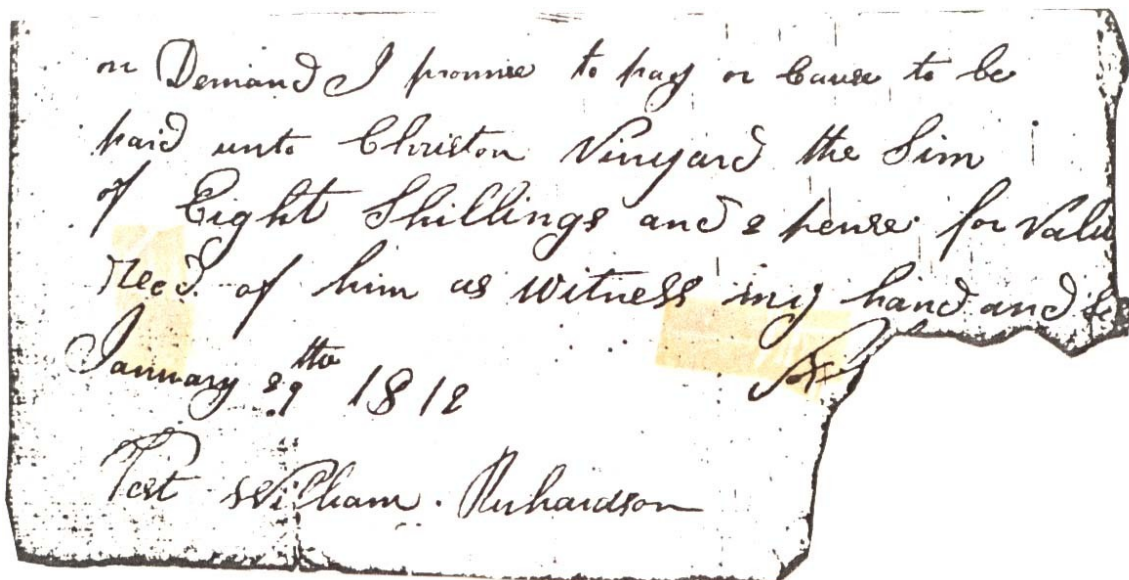 on Demand I promise to pay or Cause to be
paid unto Christon Vinyard the Sim
of Eight Shillings and 2 pense for Valu
Recd. of him as witness my hand and
January 29th 1812
Test William Richardson